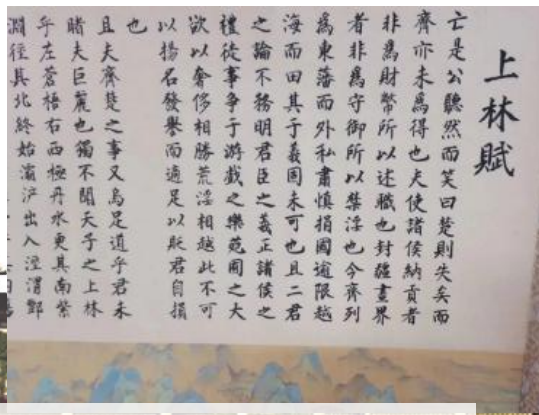 上林賦
亡是公聽然而笑曰楚則失矣而
齊亦未爲得也夫使諸侯納貢者
非爲財幣所以述職也封疆畫界
者非爲守御所以禁淫也今齊列
爲東藩而外私肅慎捐國逾限越
海而田其于義固未可也且二君
之論不務明君臣之義正諸侯之
禮徒事爭于游戲之樂苑囿之大
欲以奢侈相勝荒淫相越此不可
以揚名發譽而適足以貶君自損
也
且夫齊楚之事又烏足道乎君未
睹夫巨麗也獨不聞天子之上林
乎左蒼梧右西極丹水更其南紫
淵徑其北終始灞浐出入涇渭酆